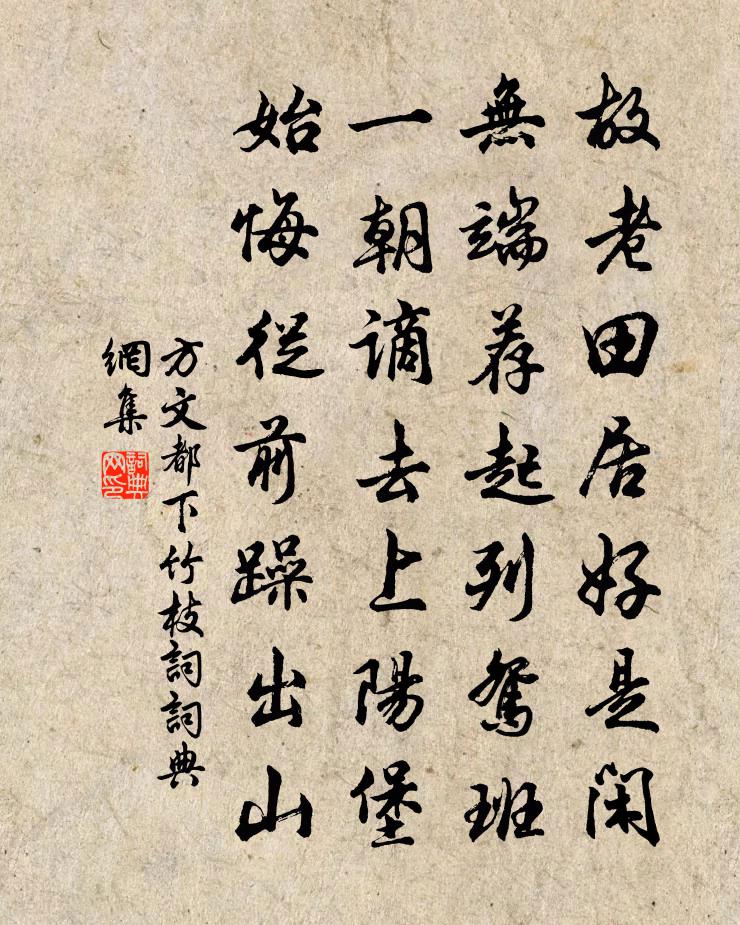 故老田居好是閑
無端荐起列鴛班
一朝謫去上陽堡
始悔從前躁出山
方文都下竹枝詞詞典
網集
詞典網印